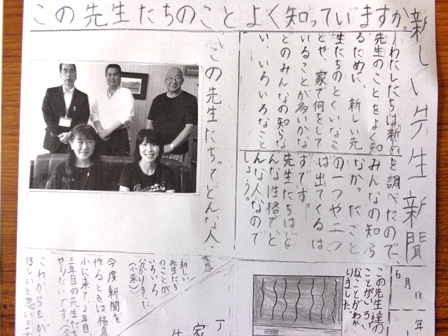 この先生たちのことよく知っていますか。
新しい先生新聞
6月
年
わたしたちは新しい
先生のことをよく知
るために、新しい先
生たちのとくいなこ
とや、家で何をして
いることが多いかな
どのみんなの知らな
い、いろいろなこと
を調べたので、
みんなの知ら
なかったこと
の一つや二つ
は出てくるは
ずです。
先生たちはど
んな性格で、ど
んな人なので
しょう。
この先生たちってどんな人
この先生達の
ことがいろい
なことがわか
りました。
感想
新しい
いろいろ
のことが
分かりました。
今度新聞を
作るときは稲
小に来て2年目、
三年目の先生
やりたいです。
これからもが
ほしいと思いま